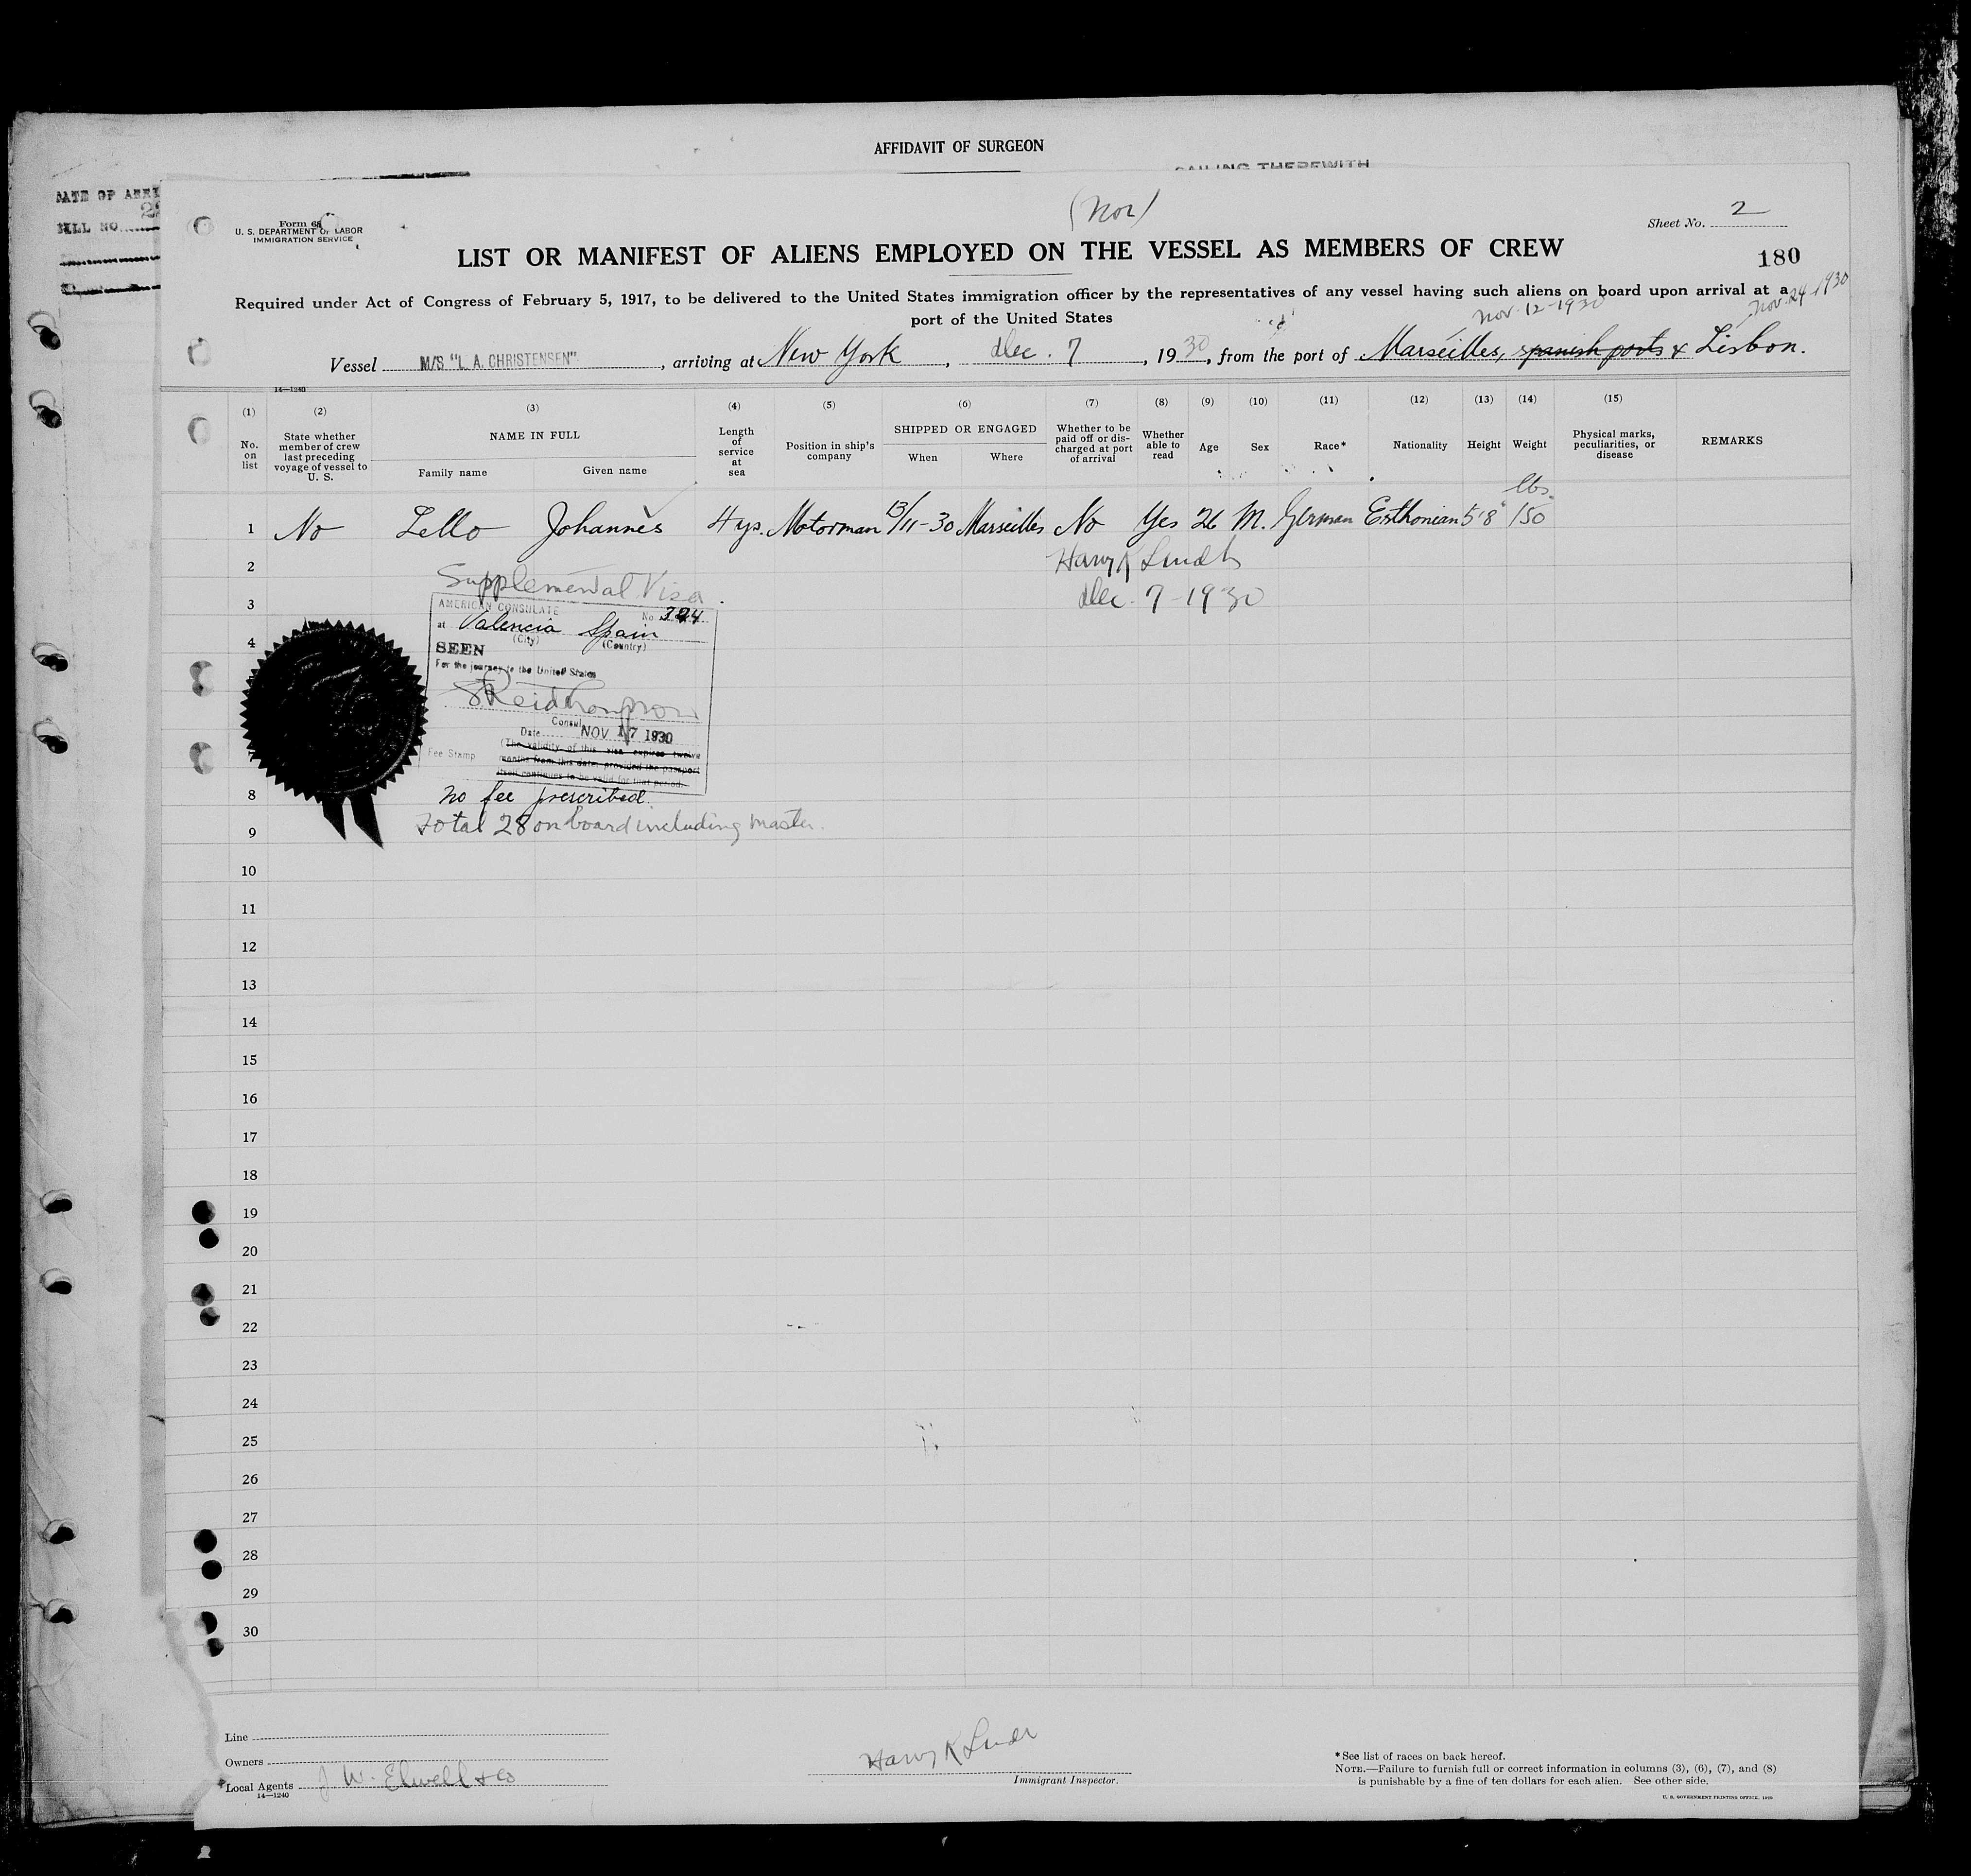 AFFIDAVIT OF SURGEON
SAILING THEREWITH
DATE OF ARRI
(Nor)
Form 68
U. S. DEPARTMENT OF LABOR
IMMIGRATION SERVICE
Sheet No. 2
LIST OR MANIFEST OF ALIENS EMPLOYED ON THE VESSEL AS MEMBERS OF CREW
180
Required under Act of Congress of February 5, 1917, to be delivered to the United States immigration officer by the representatives of any vessel having such aliens on board upon arrival at a
port of the United States
Nov. 12-1930 Nov. 24-1930
Vessel M/S "L. A. CHRISTENSEN", arriving at New York, Dec. 7, 1930, from the port of Marseilles, spanish ports & Lisbon.
14—1240
(1) (2) (3) (4) (5) (6) (7) (8) (9) (10) (11) (12) (13) (14) (15)
No. on list
State whether member of crew last preceding voyage of vessel to U. S.
NAME IN FULL
Family name Given name
Length of service at sea
Position in ship's company
SHIPPED OR ENGAGED
When Where
Whether to be paid off or discharged at port of arrival
Whether able to read
Age
Sex
Race*
Nationality
Height
Weight
Physical marks, peculiarities, or disease
REMARKS
lbs.
1 No Lello Johannes 4 ys. Motorman 13/11-30 Marseilles No Yes 26 M. German Esthonian 5'8" 150
2
Supplemental Visa.
3
Dec. 7-1930
AMERICAN CONSULATE No. 324
at Valencia Spain
(City) (Country)
4
SEEN
For the journey to the United States
Consul
Date NOV 17 1930
Fee Stamp
(The validity of this visa expires twelve
months from this date, provided the passport
itself continues to be valid for that period.
8
No fee prescribed.
Total 28 on board including master.
9
10
11
12
13
14
15
16
17
18
19
20
21
22
23
24
25
26
27
28
29
30
Line
Owners
Local Agents J. W. Elwell & Co
14—1240
Immigrant Inspector.
* See list of races on back hereof.
NOTE.—Failure to furnish full or correct information in columns (3), (6), (7), and (8)
is punishable by a fine of ten dollars for each alien. See other side.
U. S. GOVERNMENT PRINTING OFFICE: 1929